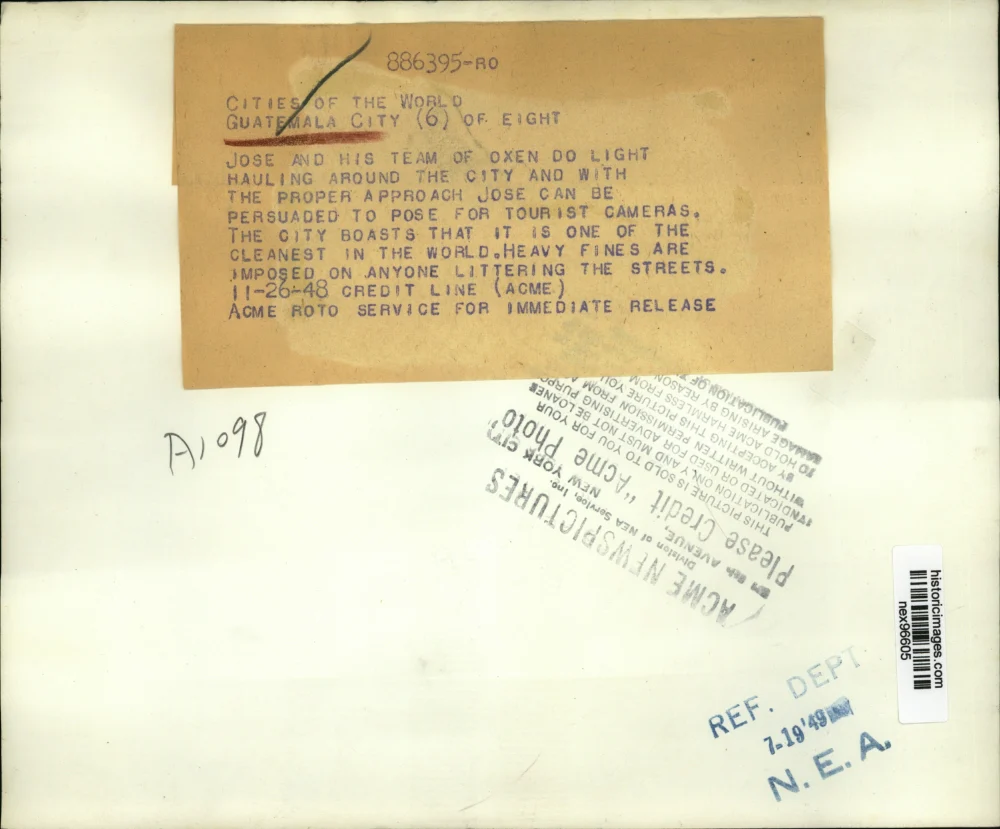 886395-RO
CITIES OF THE WORLD
GUATEMALA CITY (6) OF EIGHT
JOSE AND HIS TEAM OF OXEN DO LIGHT
HAULING AROUND THE CITY AND WITH
THE PROPER APPROACH JOSE CAN BE
PERSUADED TO POSE FOR TOURIST CAMERAS.
THE CITY BOASTS THAT IT IS ONE OF THE
CLEANEST IN THE WORLD.HEAVY FINES ARE
IMPOSED ON ANYONE LITTERING THE STREETS.
11-26-48 CREDIT LINE (ACME)
ACME ROTO SERVICE FOR IMMEDIATE RELEASE
A1098
ACME NEWSPICTURES
Division of NEA Service, Inc.
8th AVENUE, NEW YORK CITY
Please Credit "Acme Photo
THIS PICTURE IS SOLD TO YOU FOR YOUR
PUBLICATION ONLY AND MUST NOT BE LOANED
SYNDICATED OR USED FOR ADVERTISING PURPO
WITHOUT WRITTEN PERMISSION FROM A
BY ACCEPTING THIS PICTURE YOU
TO HOLD ACME HARMLESS FROM
DAMAGE ARISING BY REASON
PUBLICATION OF
historicimages.com
nex96605
REF. DEPT
7-19'49
N.E.A.